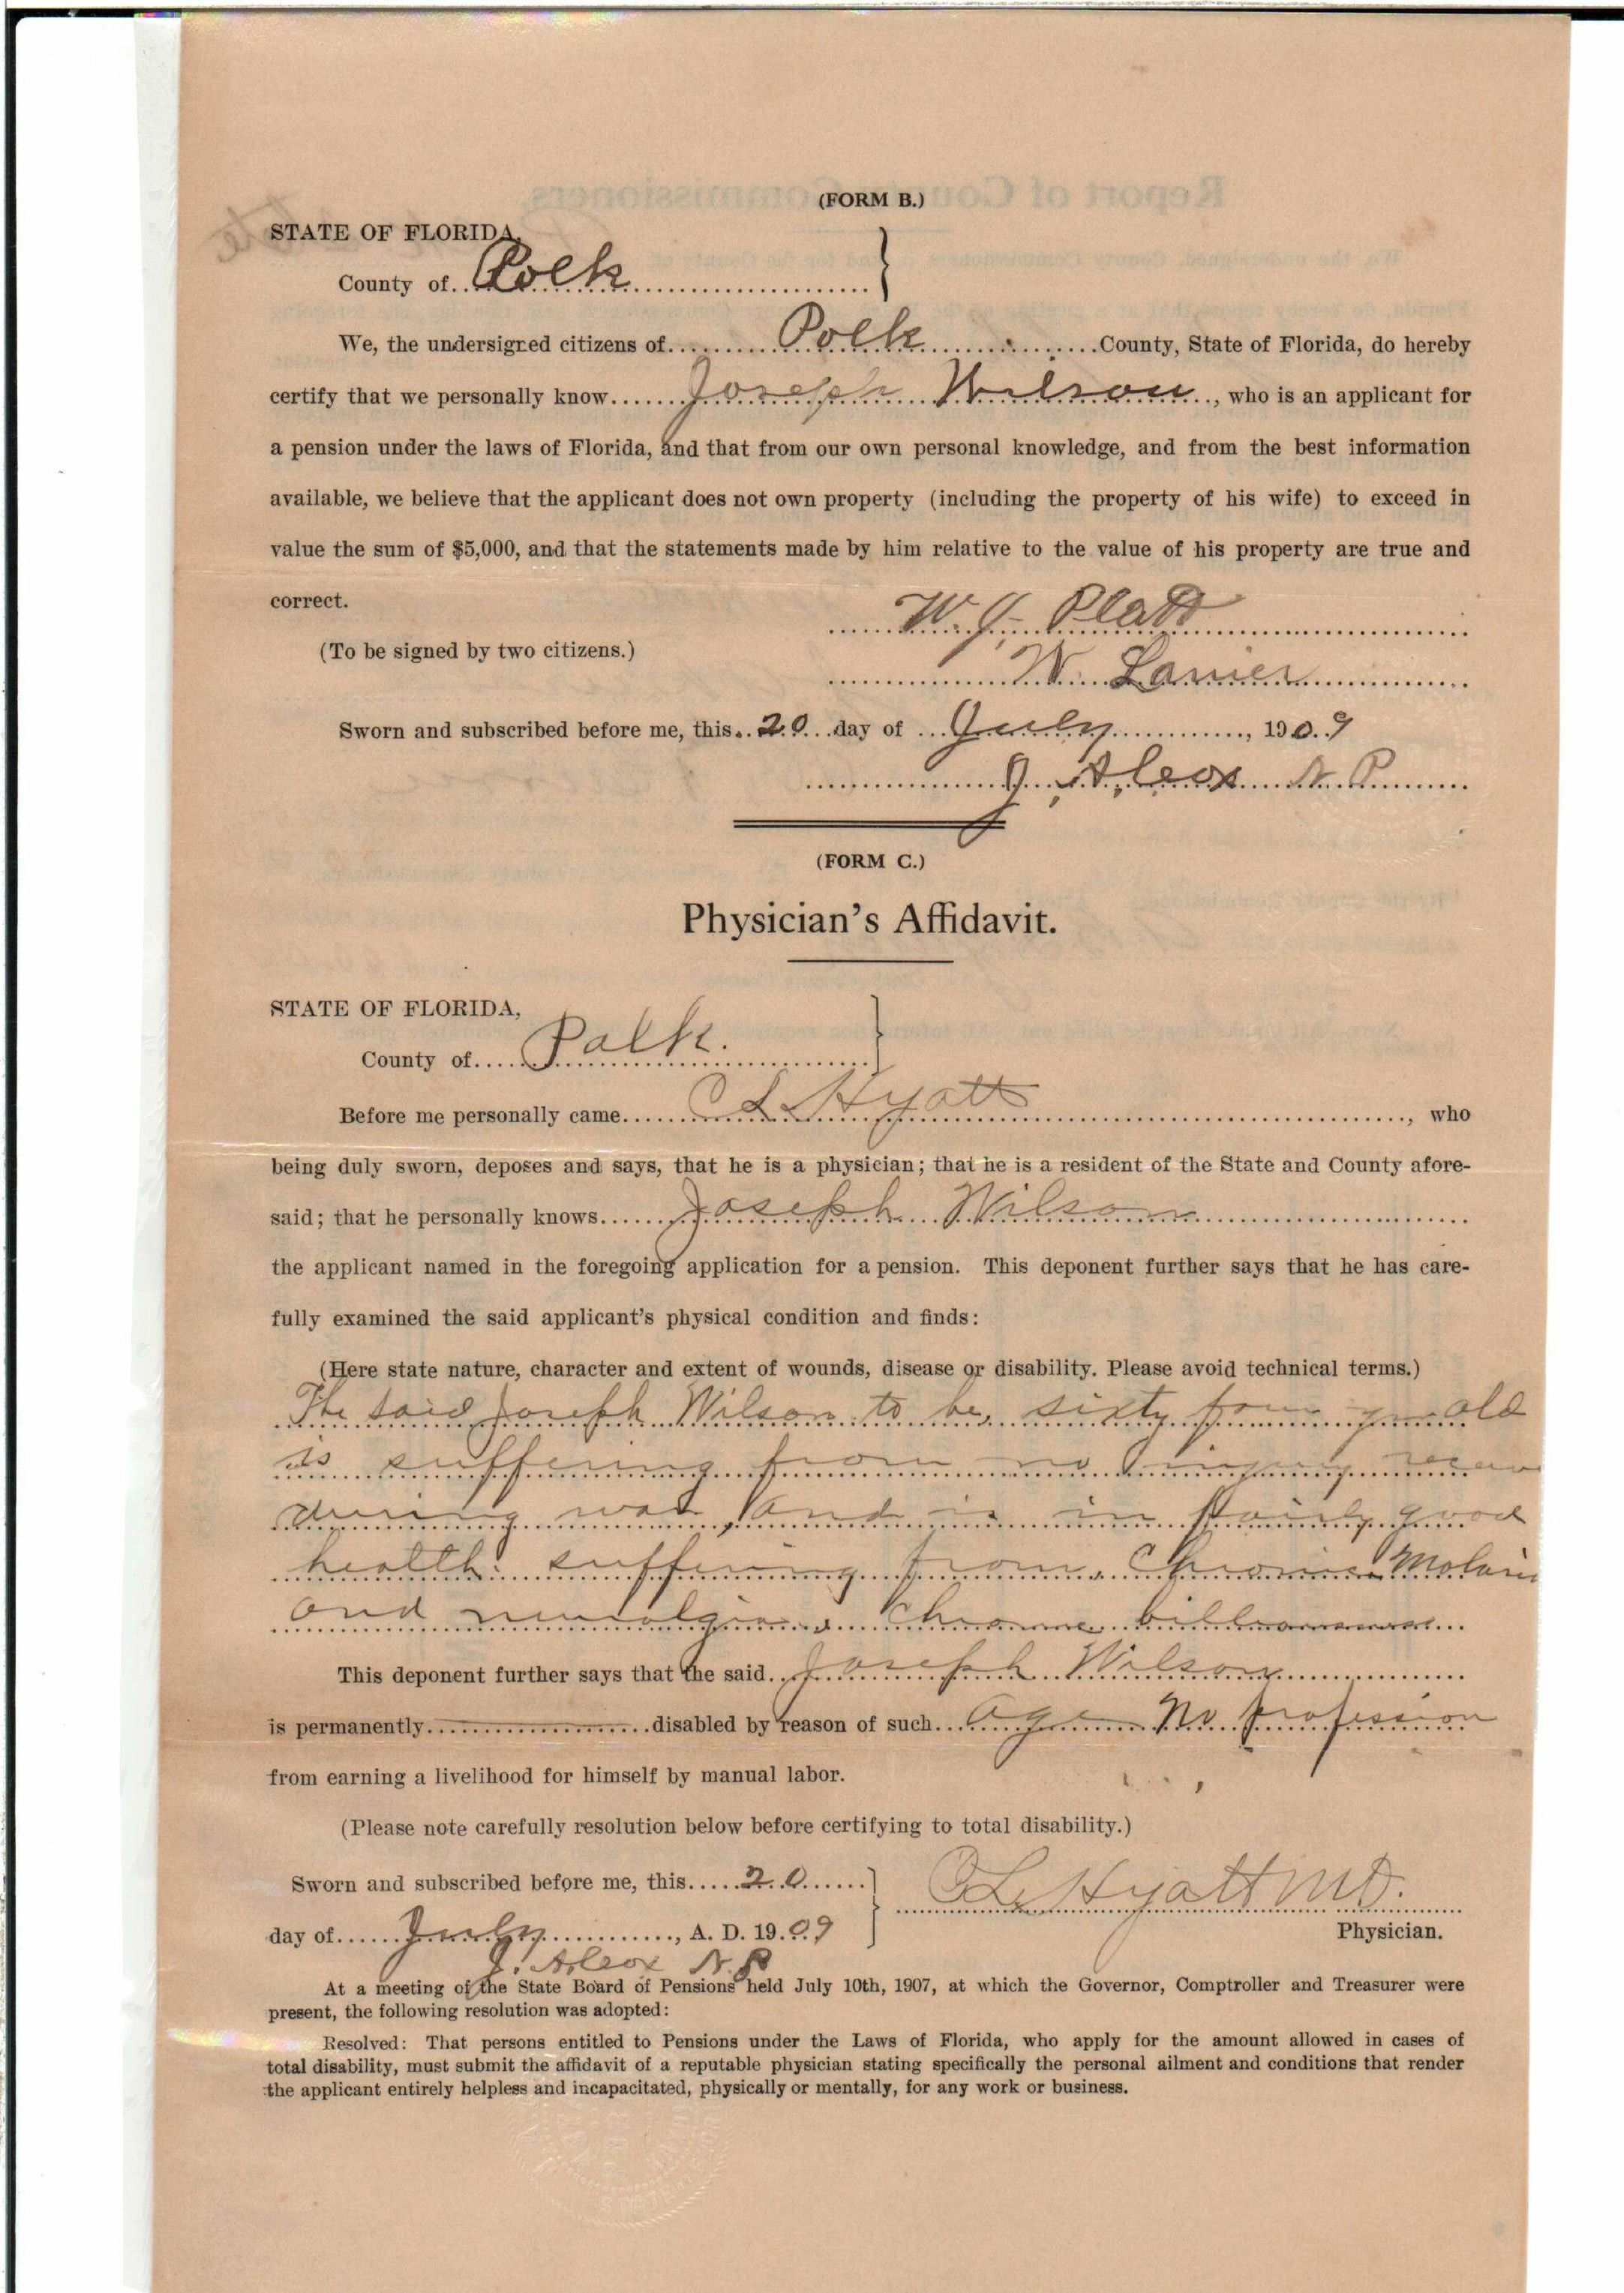 (FORM B.)
STATE OF FLORIDA,
County of Polk
We, the undersigned citizens of Polk County, State of Florida, do hereby
certify that we personally know Joseph Wilson, who is an applicant for
a pension under the laws of Florida, and that from our own personal knowledge, and from the best information
available, we believe that the applicant does not own property (including the property of his wife) to exceed in
value the sum of $5,000, and that the statements made by him relative to the value of his property are true and
correct.
W. J. Platt
(To be signed by two citizens.)
W. Lanier
Sworn and subscribed before me, this 20 day of July, 1909
J. Alcox N. P.
(FORM C.)
Physician's Affidavit.
STATE OF FLORIDA,
County of Polk.
Before me personally came C L Hyatt, who
being duly sworn, deposes and says, that he is a physician; that he is a resident of the State and County afore-
said; that he personally knows Joseph Wilson
the applicant named in the foregoing application for a pension. This deponent further says that he has care-
fully examined the said applicant's physical condition and finds:
(Here state nature, character and extent of wounds, disease or disability. Please avoid technical terms.)
The said Joseph Wilson to be sixty four old
is suffering from no injury
during war, and is in fairly good
health. suffering from Chronic
and neuralgia. Chronic
This deponent further says that the said Joseph Wilson
is permanently disabled by reason of such age No profession
from earning a livelihood for himself by manual labor.
(Please note carefully resolution below before certifying to total disability.)
Sworn and subscribed before me, this 20
C L Hyatt MD.
day of July, A. D. 1909
Physician.
J. Alcox N. P
At a meeting of the State Board of Pensions held July 10th, 1907, at which the Governor, Comptroller and Treasurer were
present, the following resolution was adopted:
Resolved: That persons entitled to Pensions under the Laws of Florida, who apply for the amount allowed in cases of
total disability, must submit the affidavit of a reputable physician stating specifically the personal ailment and conditions that render
the applicant entirely helpless and incapacitated, physically or mentally, for any work or business.